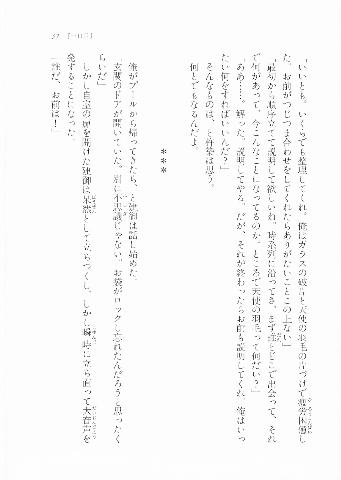 37 【一日目】
「いいとも。いくらでも整理してくれ。俺はガラスの破片と天使の羽毛の片づけで疲労困憊し
た。お前がつじつま合わせをしてくれたらありがたいことこの上ない」
「最初から順序立てて説明して欲しいね。時系列に沿ってさ。まず誰とどこで出会って、それ
で何があって、今こんなことになってるのか。ところで天使の羽毛って何だい？」
「ああ……。解った。説明してやる。だが、それが終わったらお前も説明してくれ。俺はいっ
たい何をすればいいんだ？」
そんなものは、と梓紫は思う。
何とでもなるんだよ。
＊＊＊
俺がプールから帰ってきたら、と建御は話し始めた。
玄関のドアが開いていた。別に不思議じゃない。お袋がロックし忘れたんだろうと思ったく
らいだ。
しかし自室の扉を開けた建御は呆然として立ちつくし、しかし瞬時に立ち直って大音声を
発することになった。
「誰だ、お前は！」